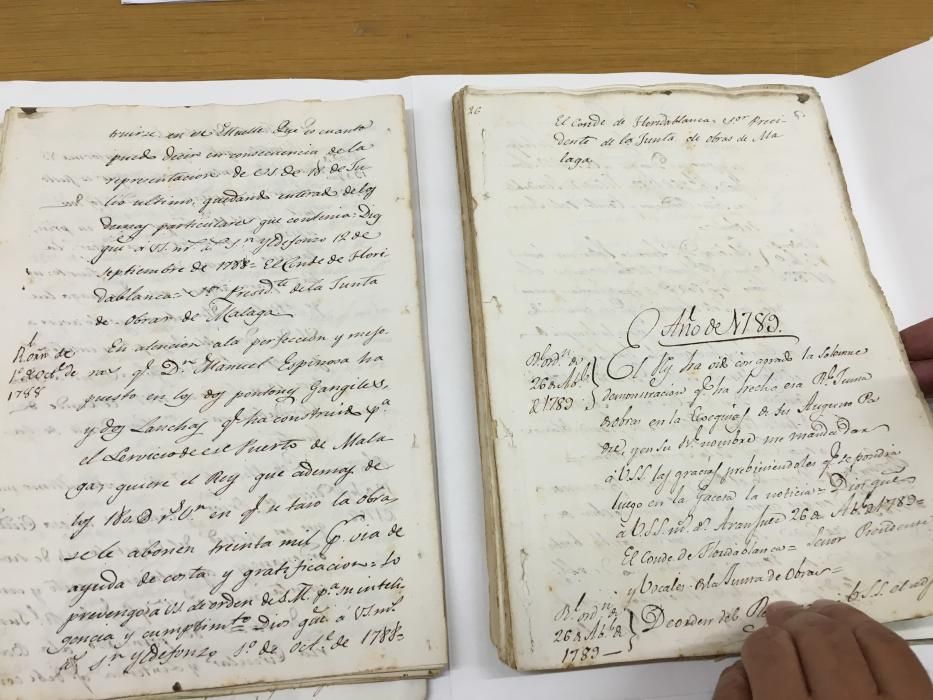 truirse en ese Muelle. Que es cuanto
puedo decir en consecuencia de la
representacion de VS de 18. de Ju-
lio ultimo, quedando enterado de los
demas particulares que contenia: Dios
gue. a VS. ms. as. Sn. Yldefonso 12 de
Septiembre de 1788= El Conde de Flori
dablanca= Sor. Presidte. de la Junta
de Obras de Malaga
Rl. orn. de
1o. de Octe. de
1788
En atencion ala perfeccion y mejo-
ras qe. Dn. Manuel Espinosa ha
puesto en los dos pontones, Gangiles,
y dos Lanchas qe. ha construido pa.
el Servicio de ese Puerto de Mala
ga; quiere el Rey que ademas de
los 180. D rs. Vn. en qe. se taso la obra
se le abonen treinta mil pr. via de
ayuda de costa y gratificacion= Lo
prevengo a VS de orden de S. M. pa. su inteli
gencia y cumplimto. Dios gue. a VS. ms.
as. Sn. Yldefonso 1o. de Octe. de 1788=
26
El Conde de Floridablanca= Sor. Presi-
dente de la Junta de obras de Ma-
laga
Año de 1789.
Rl. ordn. de
26 de Abl.
de 1789
El Rey ha oido con agrado la Solemne
demonstracion qe. ha hecho esa Rl. Junta
de obras en las Exequias de su Augusto Pa
dre, y en su Rl. nombre me manda dar
á V.SS. las gracias prebiniendoles qe. se pondrá
luego en la Gaceta la noticia= Dios gue.
á V.SS. ms. as. Aranjuez 26 de Abl. de 1789=
El Conde de Floridablanca= Señor Presidente
y Vocales de la Junta de Obras=
Rl. ordn. de
26 de Abl. de
1789
De orden del V.SS. el